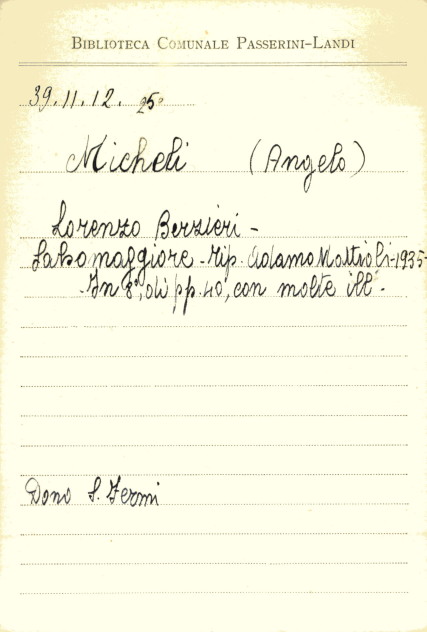 BIBLIOTECA COMUNALE PASSERINI-LANDI
39.11.12. 25º
Micheli (Angelo)
Lorenzo Berzieri -
Salsomaggiore - Tip. Adamo Mattioli - 1935 -
- In 8º, di pp. 40, con molte ill. -
Dono S. Fermi